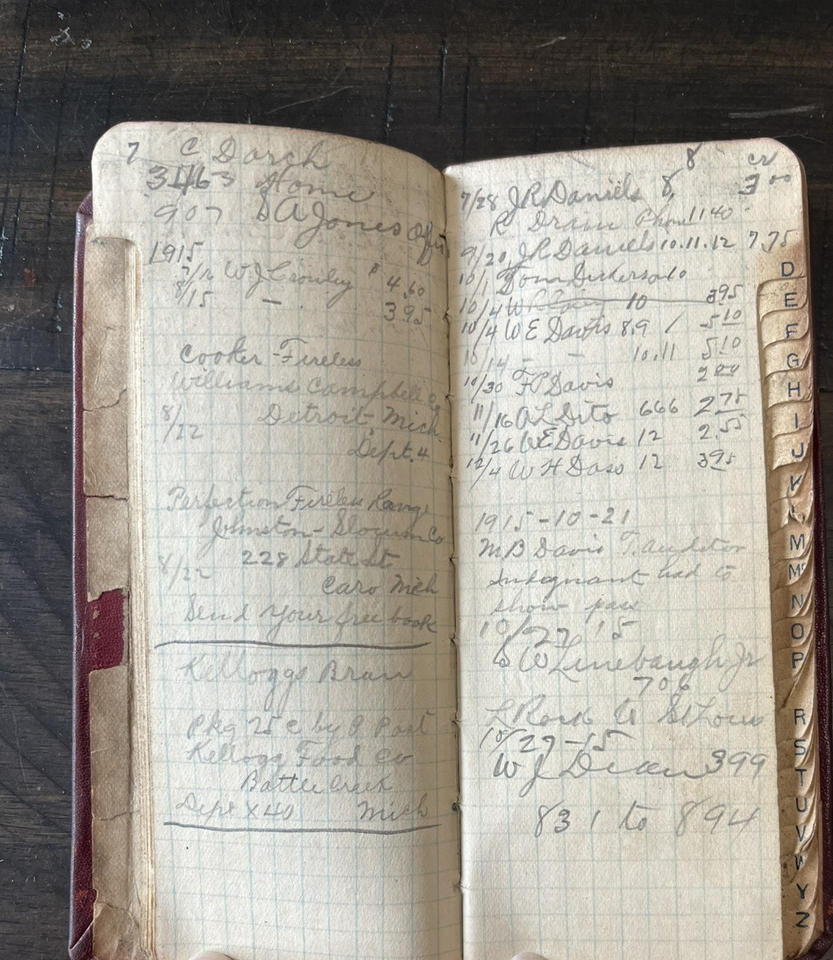 7 C Dorch
3463 Home
907 S A Jones Offis
1915
7/16 W J Crowley $ 4.60
8/15 — 3.95
Cooker - Fireless
Williams Campbell
8/22 Detroit, Mich
Dept. 4
Perfection Fireless Range
Johnston - Slocum Co
228 State St
8/22 Caro Mich
Send your free book
Kelloggs Bran
Pkg 25 c by P Post
Kellogg Food Co
Battle Creek
Dept X 40 Mich
8 cr
7/28 J R Daniels 8, 3 00
R Dram Phone 1140
9/20, J R Daniels 10.11.12 7.75
10/1 Tom Dickerson 10
10/4 W 10 3 95
10/4 W E Davis 8.9 / 5 10
10/14 - - 10.11 5 10
10/30 F C Davis 2 00
11/16 A L Dito 666 2 75
11/26 W E Davis 12 2.55
12/4 W H Daso 12 3 95
1915-10-21
M B Davis T. Auditor
Indignant had to
show pass
10/27 15
S W Linebaugh Jr
706
L Rock to St Louis
10/27-15
W J Dean 399
831 to 894
D
E
F
G
H
I
J
K
L
M
Mc
N
O
P
R
S
T
U
V
W
Y
Z